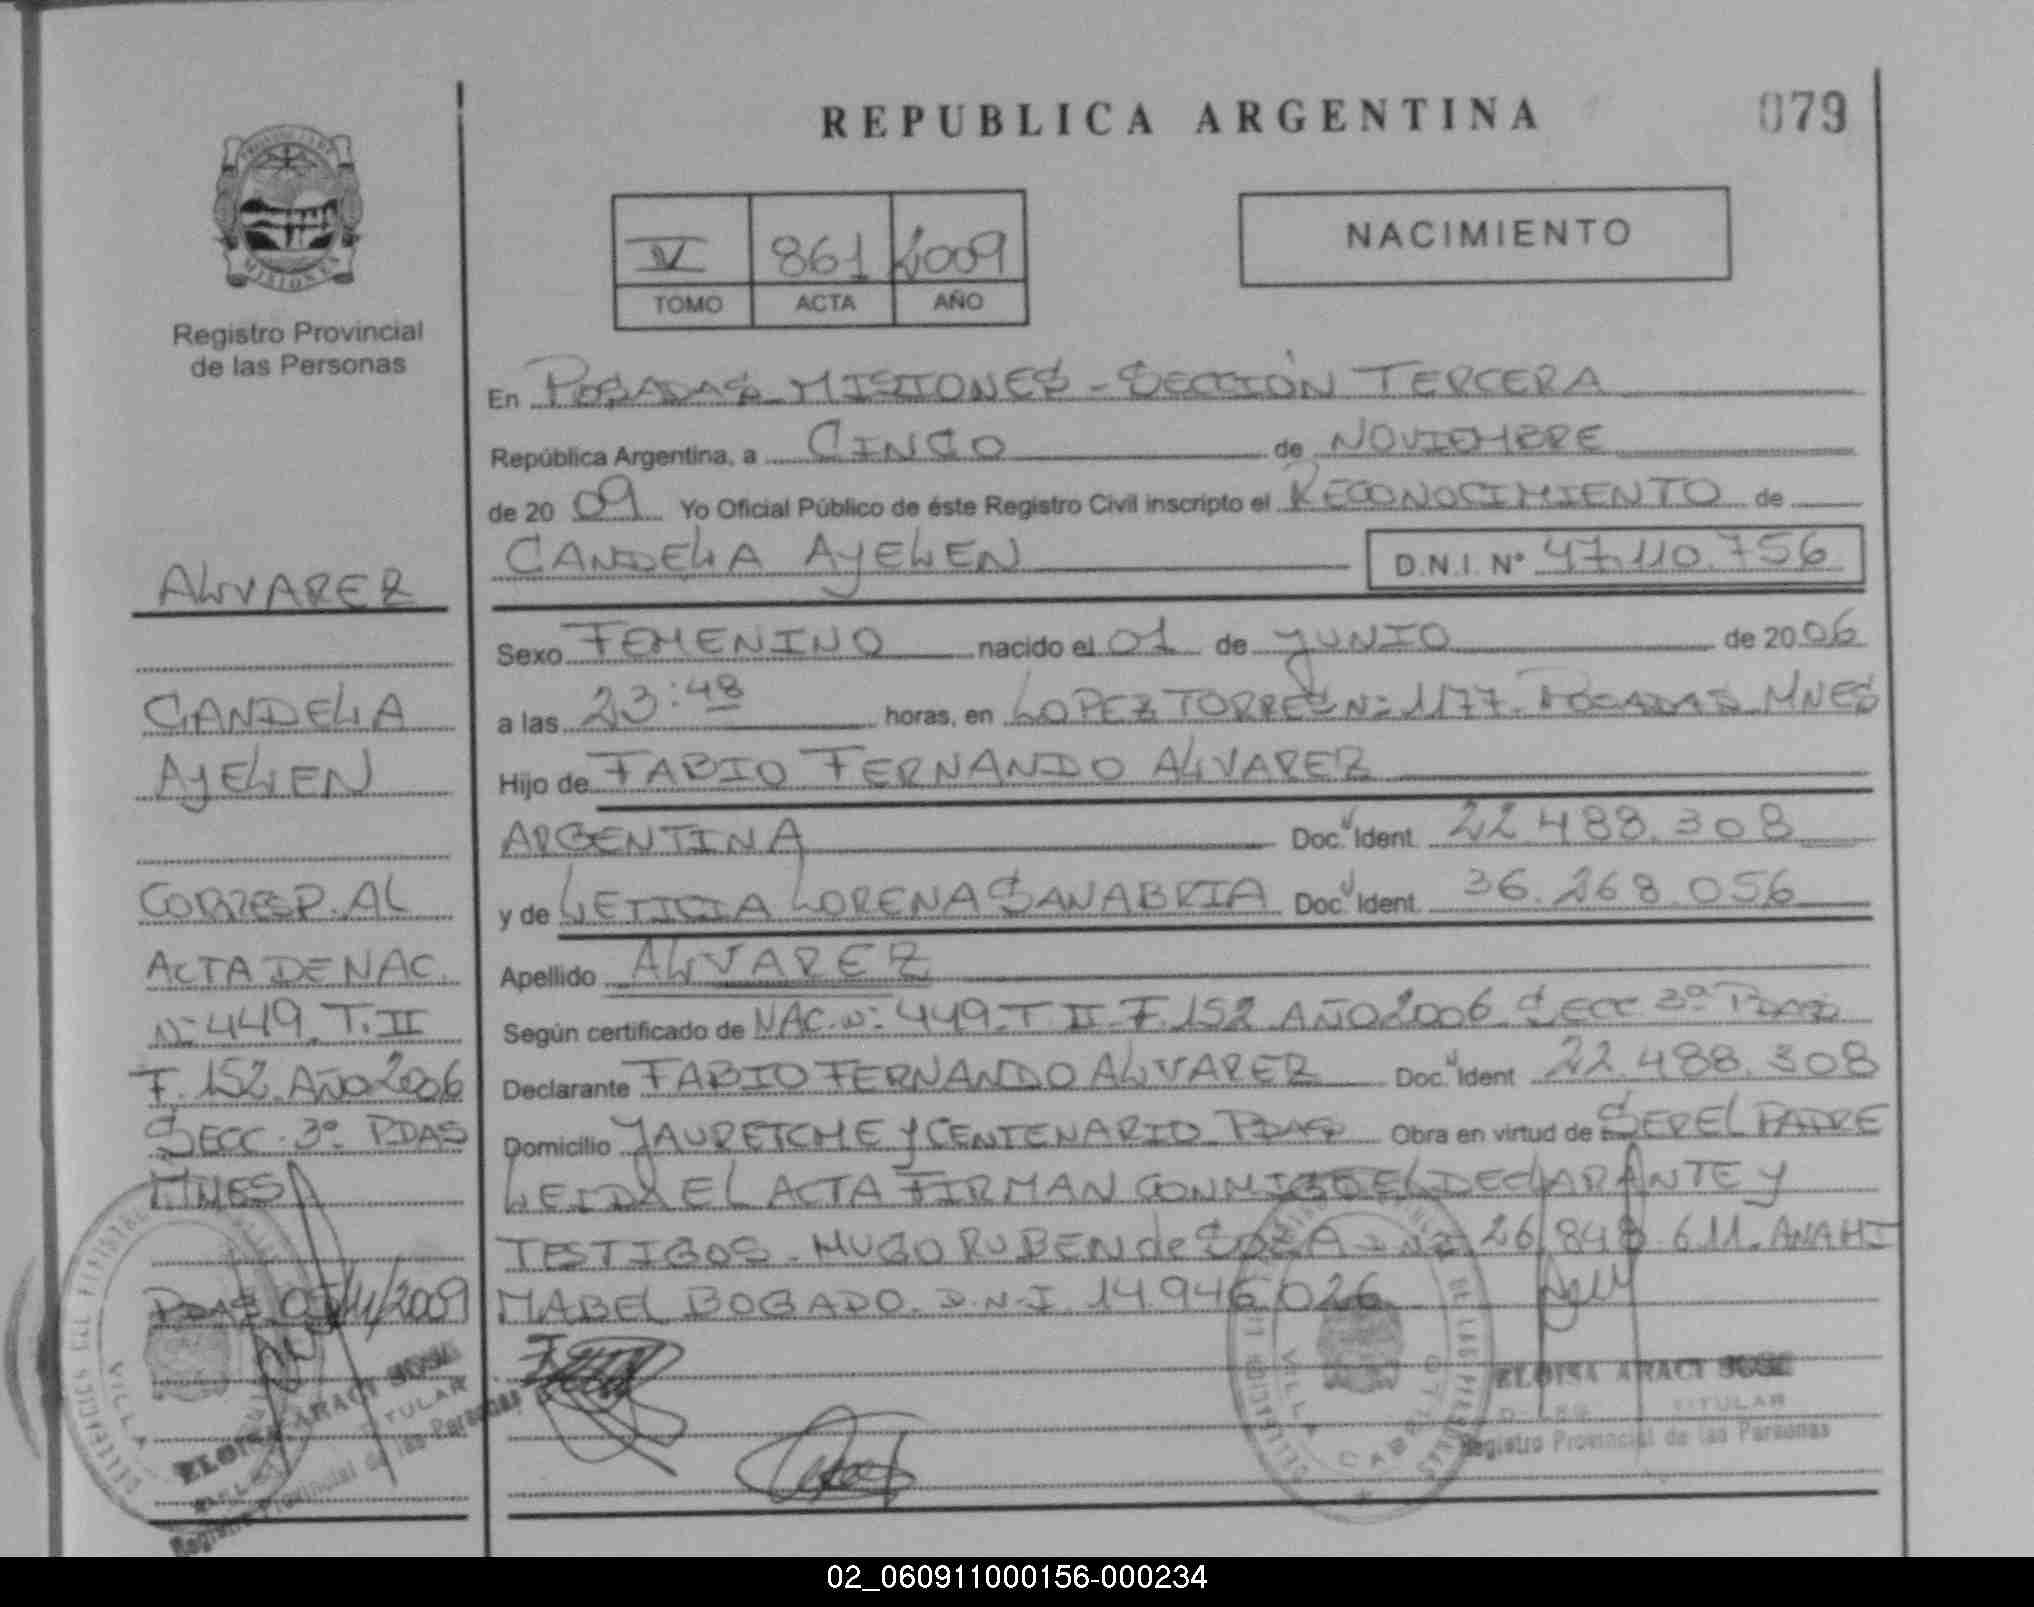 REPUBLICA ARGENTINA
079
IV 861 2009
TOMO ACTA AÑO
NACIMIENTO
Registro Provincial
de las Personas
ALVAREZ
CANDELA
AYELEN
CORRESP. AL
ACTA DE NAC.
Nº 449. T. II
F. 152. AÑO 2006
SECC. 3º PDAS
MNES
PDAS 05/11/2009
ELOISA ARACI JOSE
TITULAR
Registro Provincial de las Personas
En POSADAS MISIONES - SECCIÓN TERCERA
República Argentina, a CINCO de NOVIEMBRE
de 2009 Yo Oficial Público de éste Registro Civil inscripto el RECONOCIMIENTO de
CANDELA AYELEN D.N.I. Nº 47.110.756
Sexo FEMENINO nacido el 01 de JUNIO de 2006
a las 23:48 horas, en LOPEZ TORRES Nº 1177. POSADAS MNES
Hijo de FABIO FERNANDO ALVAREZ
ARGENTINA Doc. Ident. 22.488.308
y de LETICIA LORENA SANABRIA Doc. Ident. 36.268.056
Apellido ALVAREZ
Según certificado de NAC. Nº 449. T II F. 152 AÑO 2006 SECC 3º PDAS
Declarante FABIO FERNANDO ALVAREZ Doc. Ident 22.488.308
Domicilio JAURETCHE Y CENTENARIO PDAS Obra en virtud de SER EL PADRE
LEIDA EL ACTA FIRMAN CONMIGO EL DECLARANTE Y
TESTIGOS. HUGO RUBEN de SOZA DNI 26.848.611. ANAHI
MABEL BOGADO. D.N.I. 14.946.026
ELOISA ARACI JOSE
TITULAR
Registro Provincial de las Personas
02_060911000156-000234